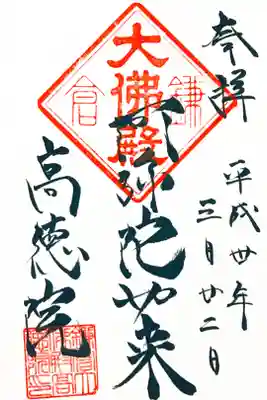 奉拝
平成廿年
三月廿二日
鎌倉
大佛殿
阿弥陀如来
高徳院